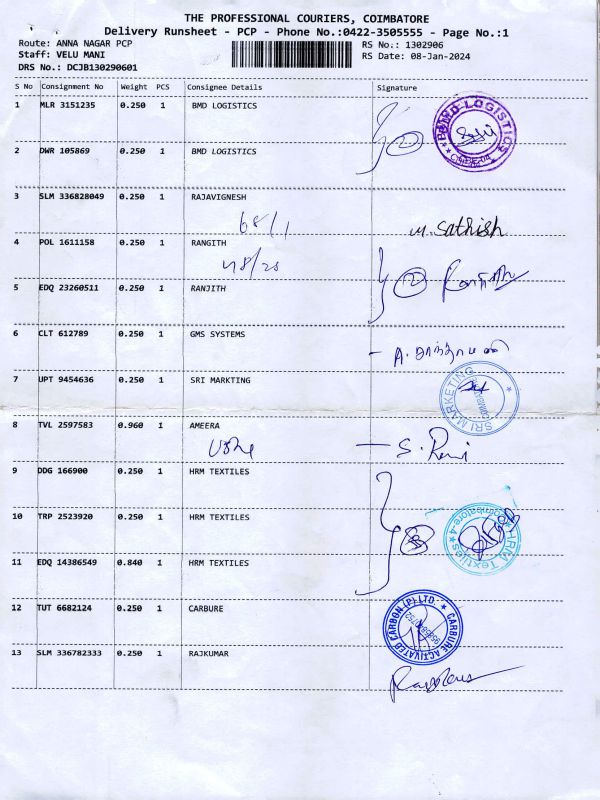 THE PROFESSIONAL COURIERS, COIMBATORE
Delivery Runsheet - PCP - Phone No.:0422-3505555 - Page No.:1
Route: ANNA NAGAR PCP RS No.: 1302906
Staff: VELU MANI RS Date: 08-Jan-2024
DRS No.: DCJB130290601
S No Consignment No Weight PCS Consignee Details Signature
1 MLR 3151235 0.250 1 BMD LOGISTICS
BMD LOGISTICS
2 DWR 105869 0.250 1 BMD LOGISTICS
3 SLM 336828049 0.250 1 RAJAVIGNESH
68/1 M. Sathish
4 POL 1611158 0.250 1 RANGITH
48/20
5 EDQ 23260511 0.250 1 RANJITH
6 CLT 612789 0.250 1 GMS SYSTEMS
7 UPT 9454636 0.250 1 SRI MARKTING
SRI MARKETING
8 TVL 2597583 0.960 1 AMEERA
S. Rani
9 DDG 166900 0.250 1 HRM TEXTILES
10 TRP 2523920 0.250 1 HRM TEXTILES
HRM Textiles Coimbatore-4
11 EDQ 14386549 0.840 1 HRM TEXTILES
12 TUT 6682124 0.250 1 CARBURE
CARBURE ACTIVATED CARBON (P) LTD.
13 SLM 336782333 0.250 1 RAJKUMAR